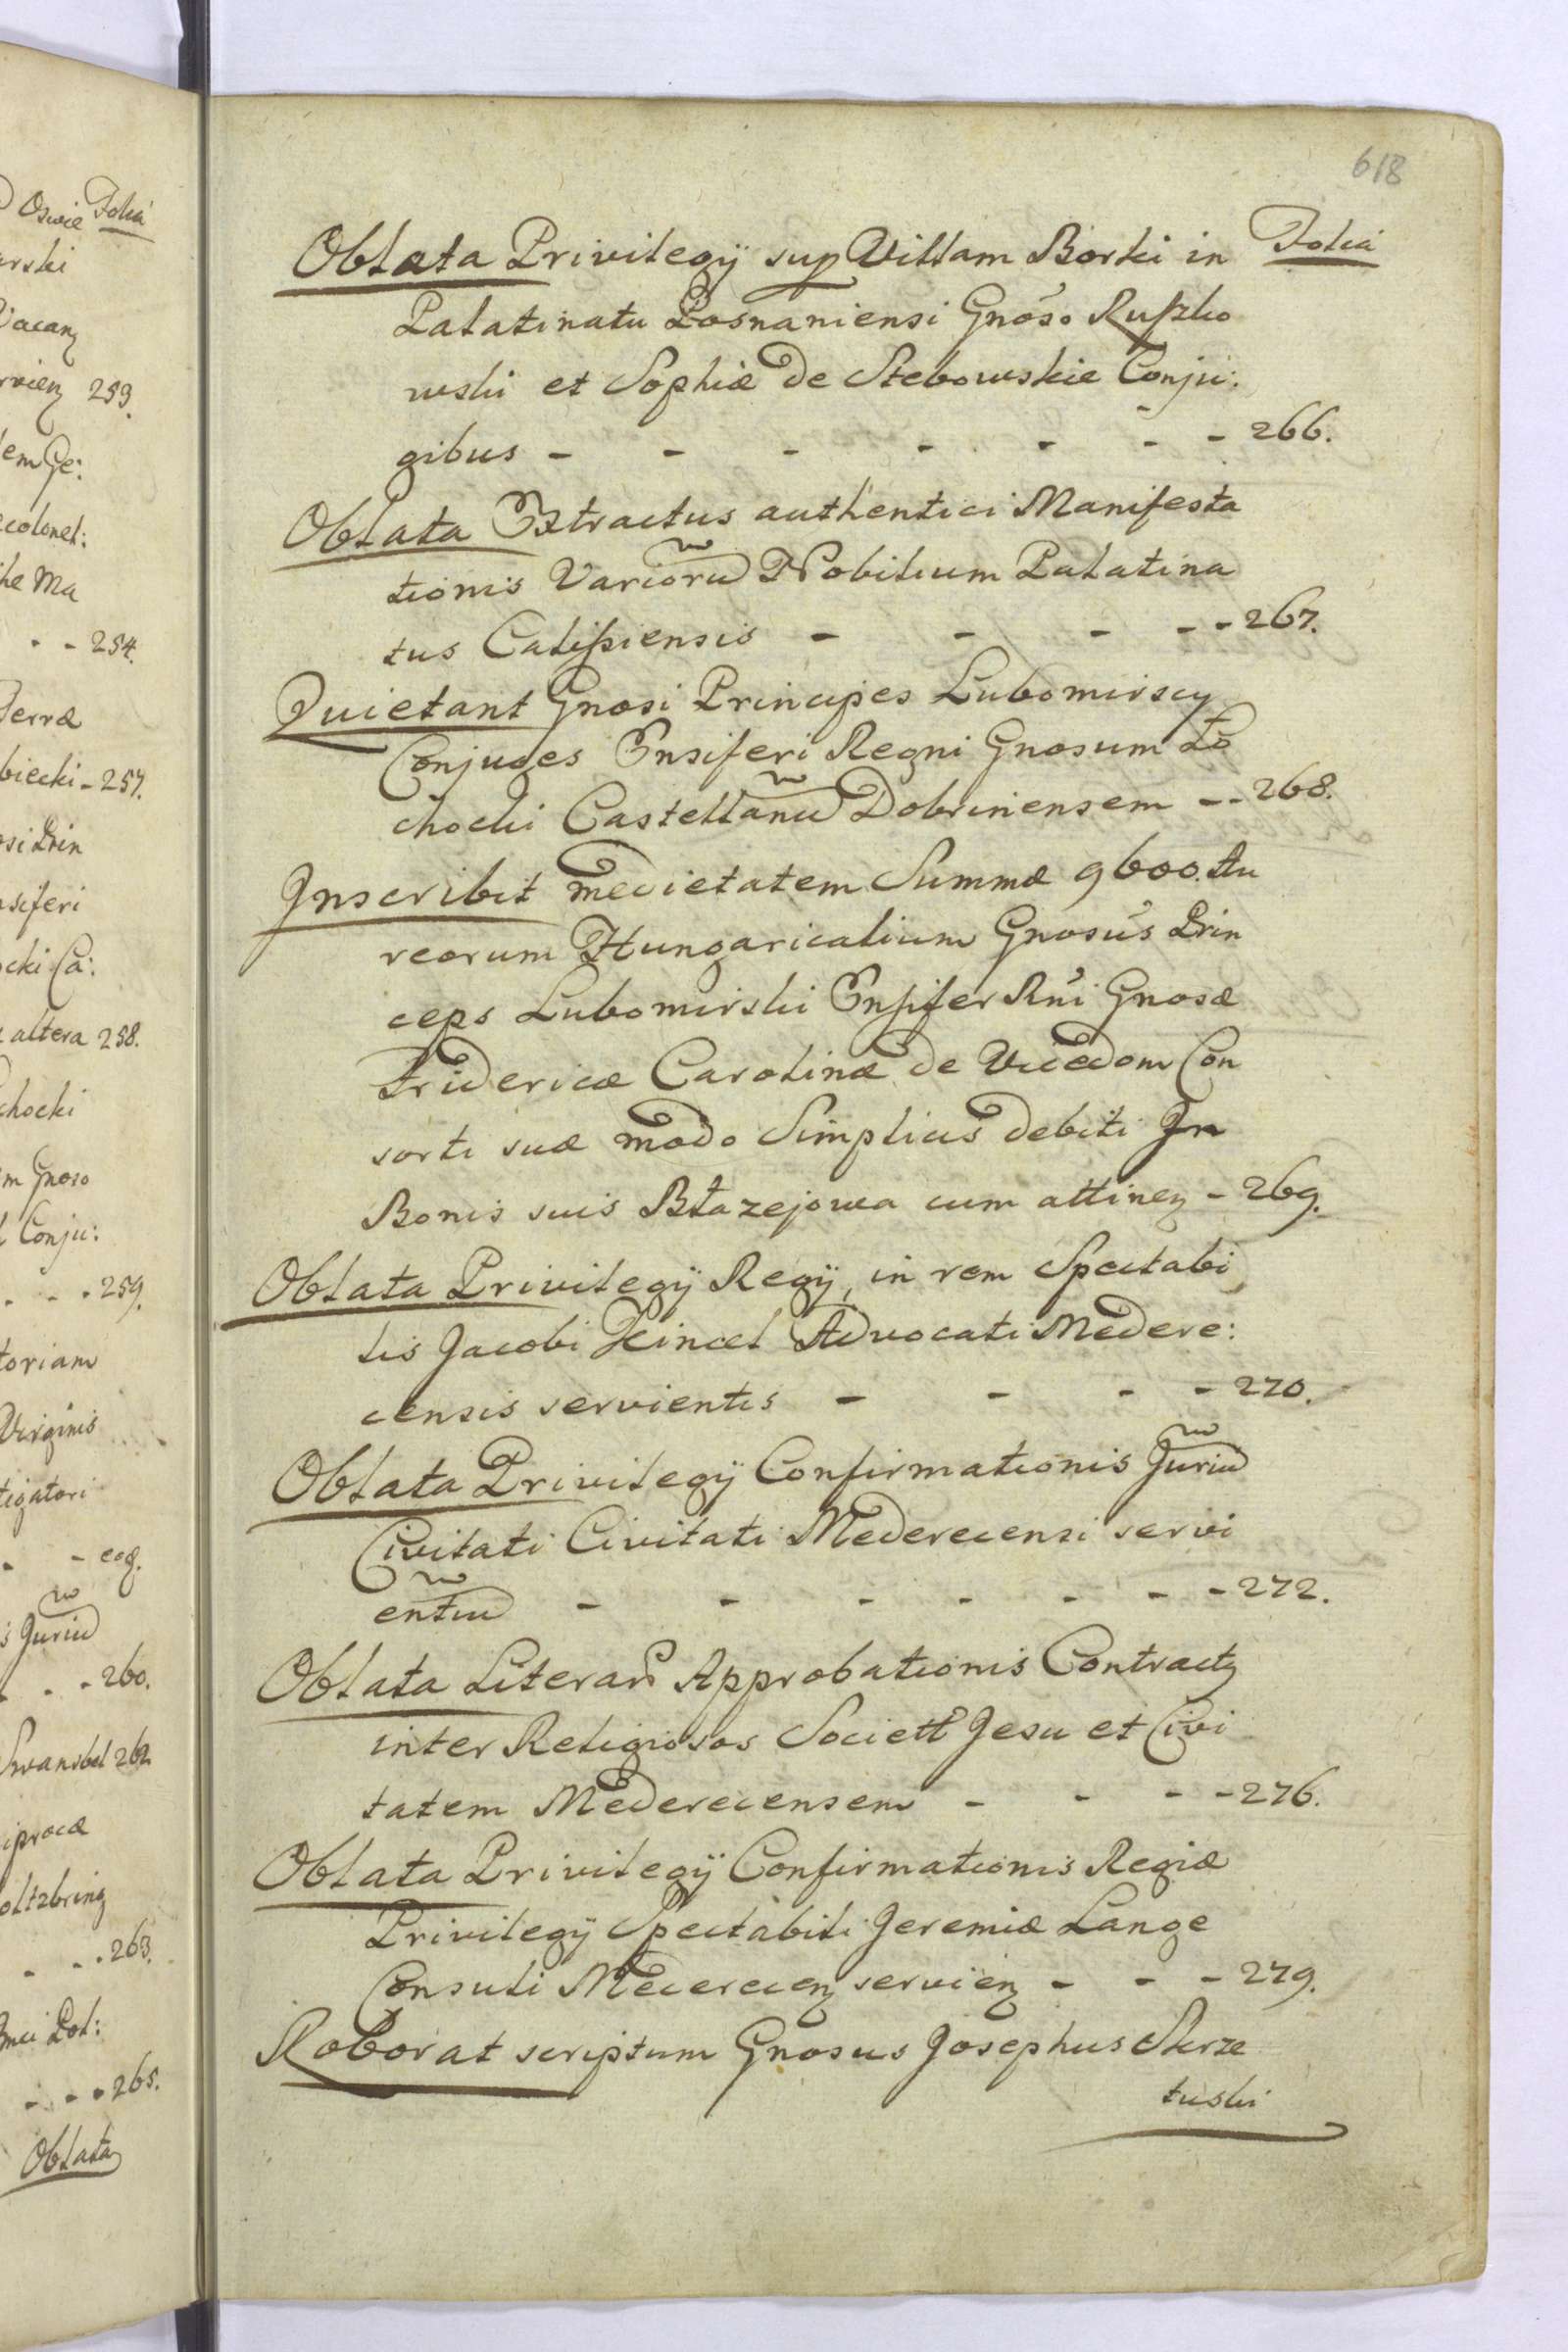 618
Folia
Oblata Privilegÿ sup Villam Borki in
Palatinatu Posnaniensi Gnoso Ruszko
wski et Sophiæ de Stebowskie Conju:
gibus - - - - - - - 266.
Oblata Extractus authentici Manifesta
tionis Varioru Nobilium Palatina
tus Calissiensis - - - - - 267.
Quietant Gnosi Principes Lubomirscy
Conjuges Ensiferi Regni Gnosum Ło
chocki Castellanu Dobrinensem - - 268.
Inscribit medietatem Summæ 9600. Au
reorum Hungaricalium Gnosus Prin
ceps Lubomirski Ensifer Rni Gnosæ
Fridericæ Carolinæ de Vicedom Con
sorti suæ modo Simplicis debiti In
Bonis suis Błazejowa cum attinen - 269.
Oblata Privilegÿ Regÿ, in rem Spectabi
lis Jacobi Advocati Medere:
censis servientis - - - - 270.
Oblata Privilegÿ Confirmationis Juriu
Civitati Civitati Mederecensi servi
entiu - - - - - - - 272.
Oblata Literar Approbationis Contract
inter Religiosos Societt Jesu et Civi
tatem Mederecensem - - - - 276.
Oblata Privilegÿ Confirmationis Regiæ
Privilegÿ Spectabili Jeremiæ Lange
Consuli Mederecen servien - - - 279.
Roborat scriptum Gnosus Josephus Skrze
tuski
Oswie Folia
rski
Vacan
rvien 253.
em Ge:
colonel:
he Ma
- - 254.
Terræ
biecki - 257.
osi Prin
nsiferi
ocki Ca:
altera 258.
chocki
m Gnoso
Conju:
- - - 259.
toriam
Virginis
tigatori
- - eod.
s Juriu
- - - 260.
262
iprocæ
- - - 263.
Pol:
- - - 265.
Oblata